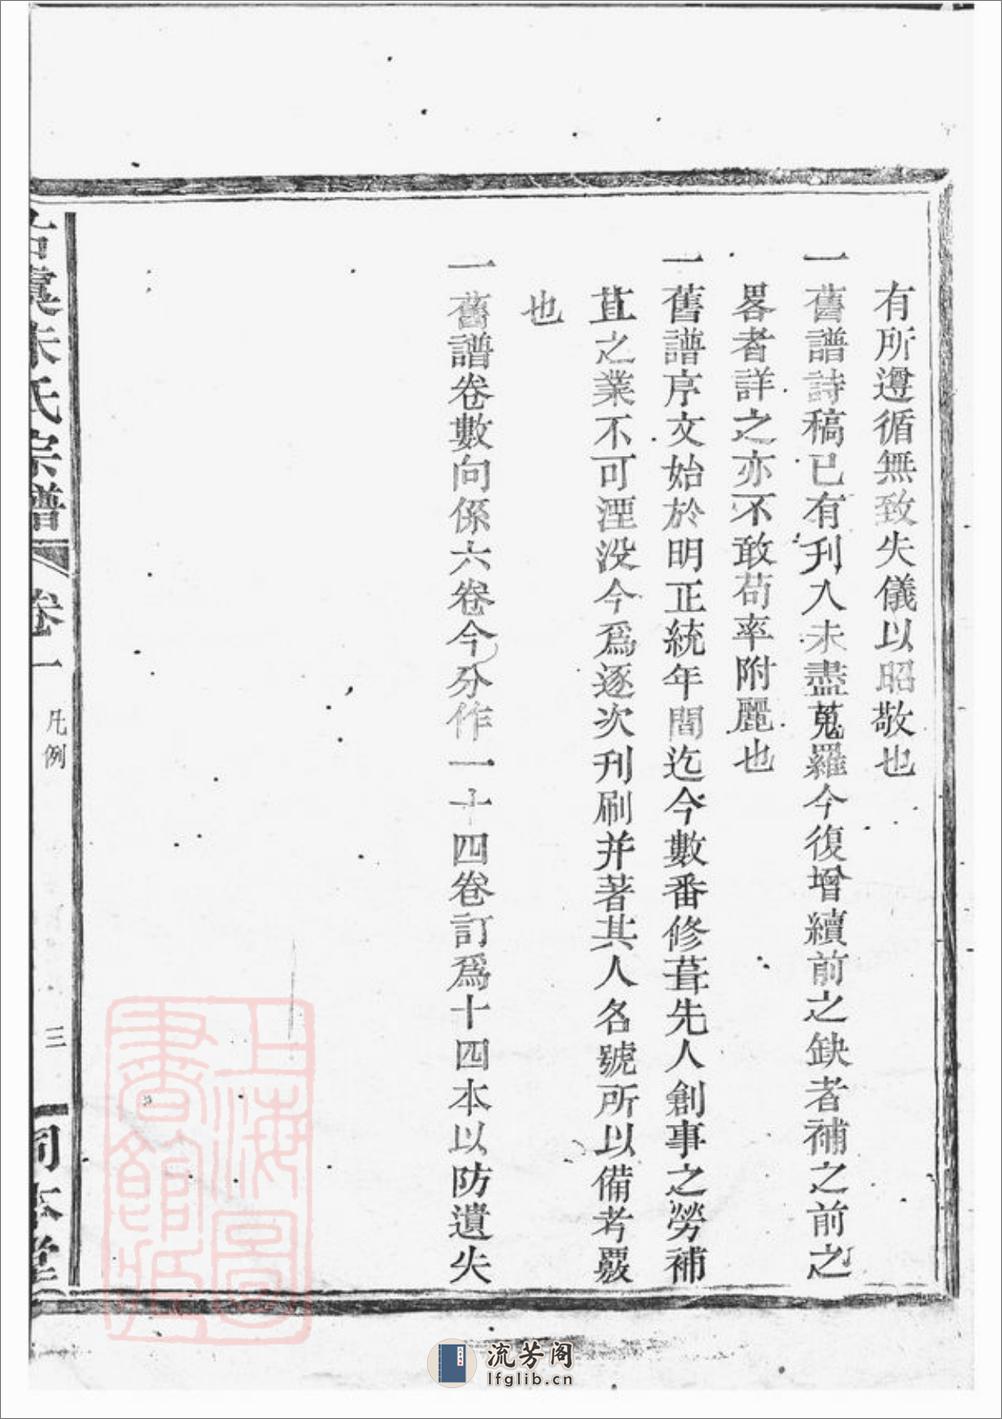 有所遵循無致失儀以昭敬也
一舊譜詩稿已有刊入未盡蒐羅今復增續前之缺者補之前之
畧者詳之亦不敢苟率附麗也
一舊譜序文始於明正統年間迄今數番修葺先人創事之勞補
苴之業不可湮没今爲逐次刊刷并著其人名號所以備考覈
也
一舊譜卷數向係六卷今分作一十四卷訂爲十四本以防遺失
古虞朱氏宗譜 卷一 凡例 三
上海圖
書館藏
流芳阁
lfglib.cn